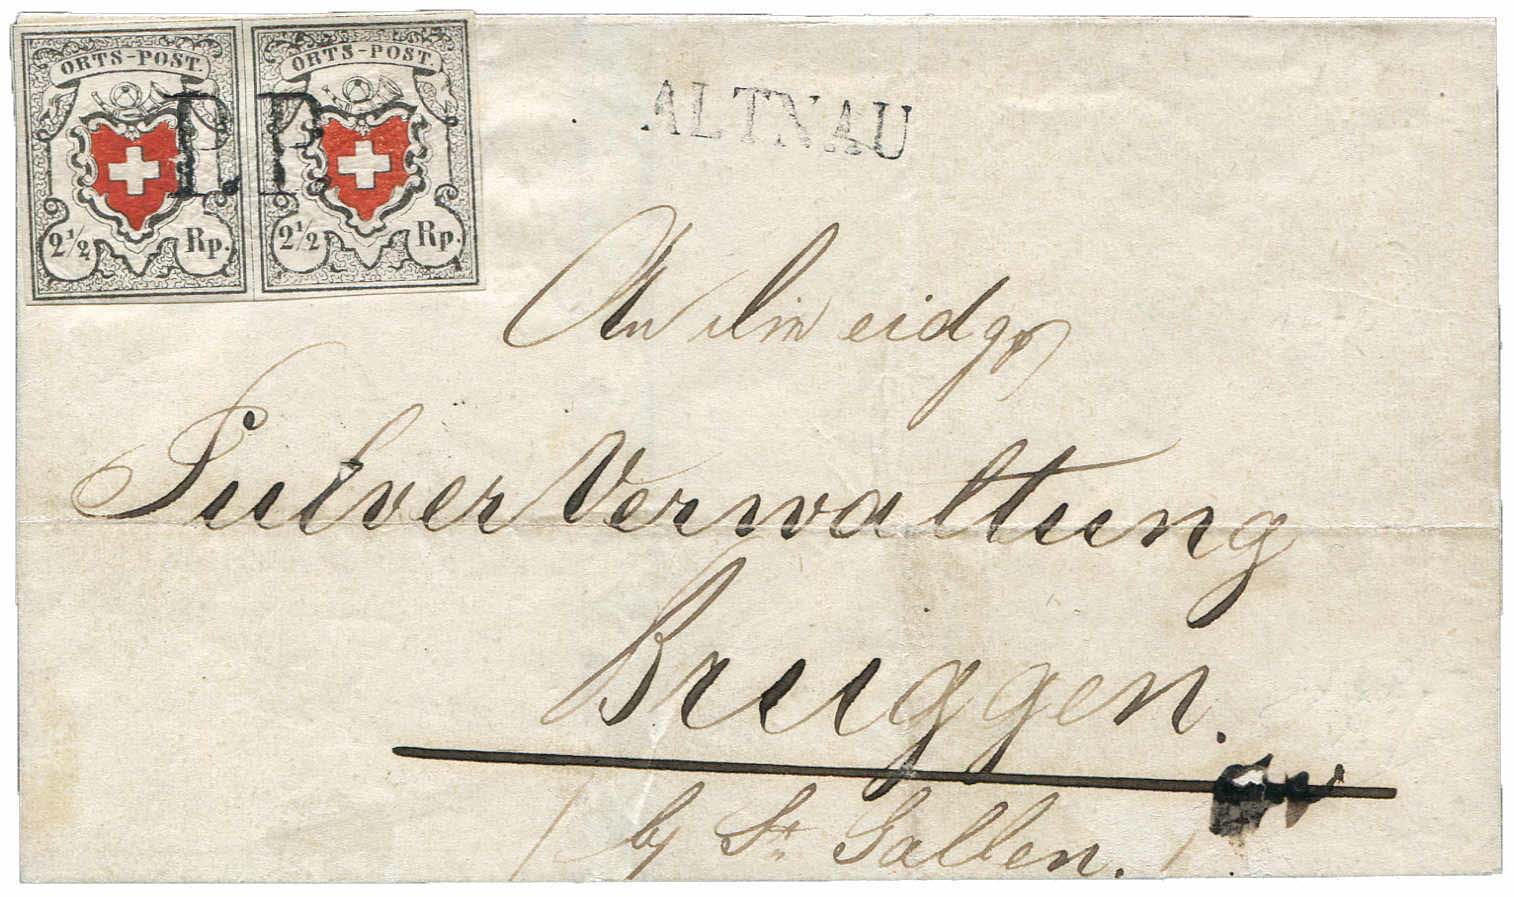 ORTS-POST. ORTS-POST.
P.P.
2½ Rp. 2½ Rp.
ALTNAU
An die eidgs
Pulver Verwaltung
Bruggen.
by St. Gallen.